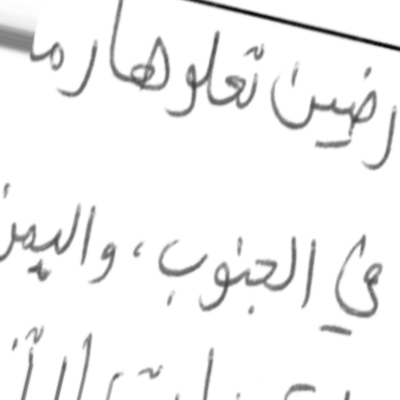 رضين تعلوها رما
في الجنوب، واليمن